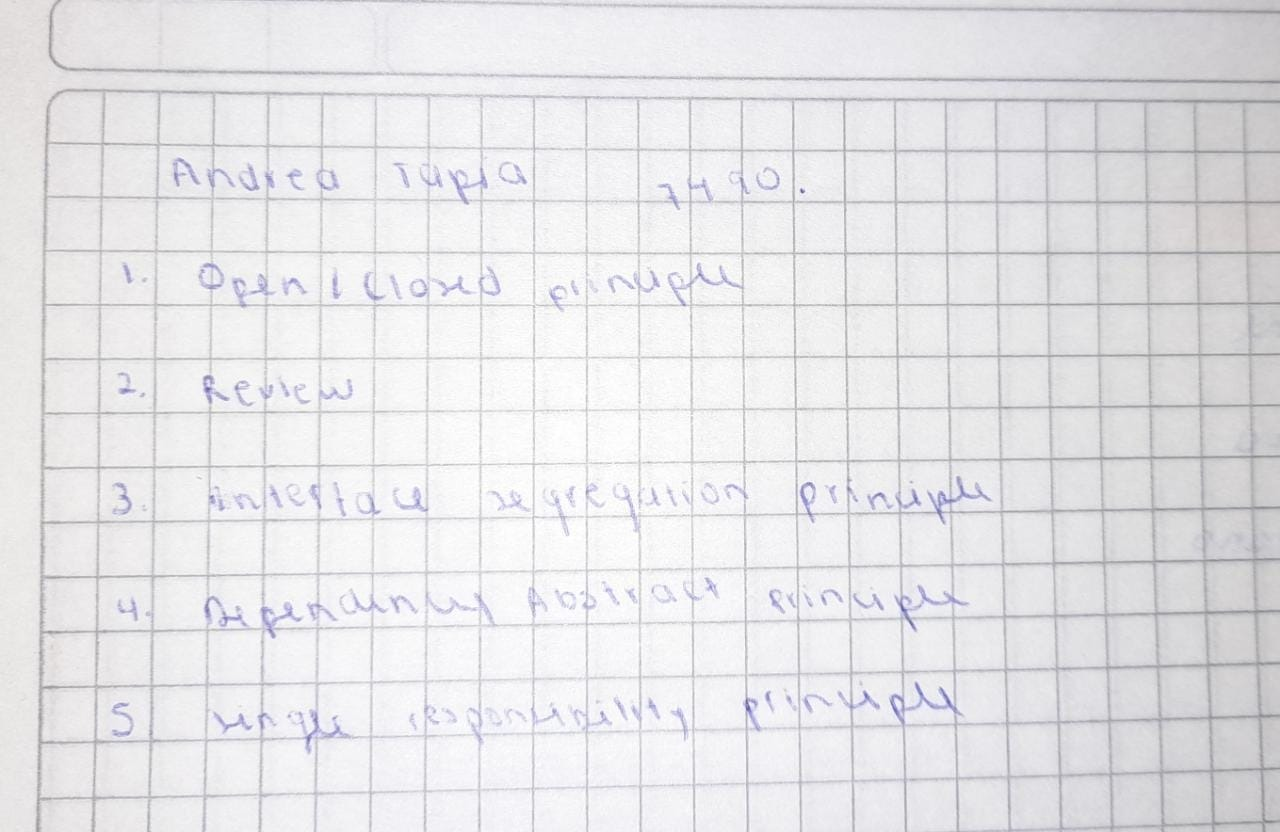 Andrea Tapia 7490.
1. Open / Closed principle
2. Review
3. interface segregation principle
4. Dependency Abstract principle
5 single responsibility principle